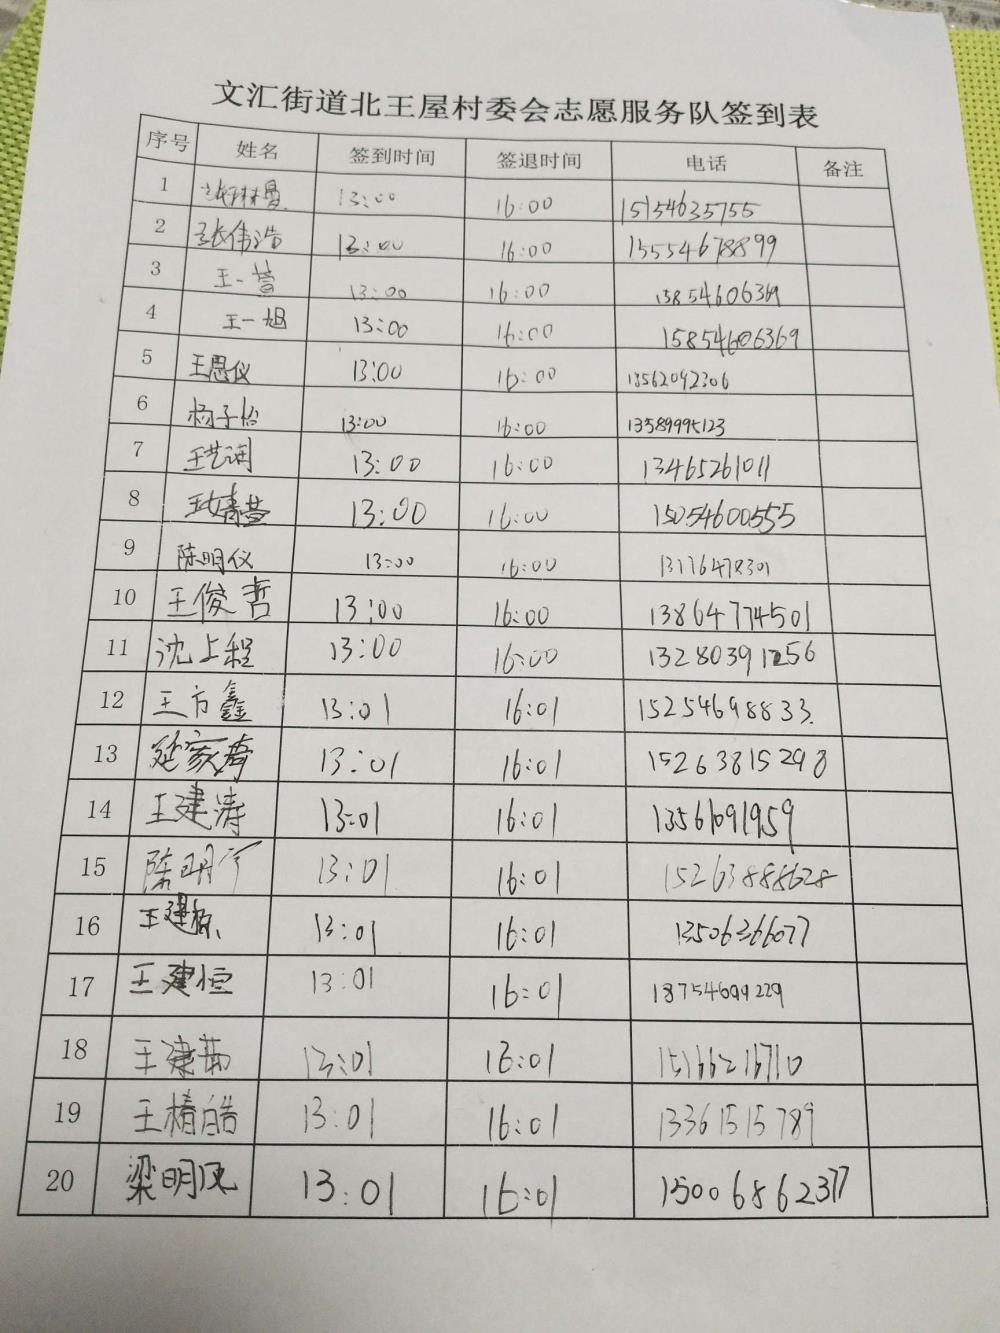 文汇街道北王屋村委会志愿服务队签到表
序号 姓名 签到时间 签退时间 电话 备注
1 张琳曼 13:00 16:00 15154635755
2 张伟浩 13:00 16:00 15554678899
3 王一萱 13:00 16:00 15854606369
4 王一旭 13:00 16:00 15854606369
5 王恩仪 13:00 16:00 13562092306
6 杨子怡 13:00 16:00 13589995123
7 王艺润 13:00 16:00 13465261011
8 13:00 16:00 15054600555
9 陈明仪 13:00 16:00 13176478301
10 王俊哲 13:00 16:00 13864774501
11 沈上程 13:00 16:00 13280391256
12 王方鑫 13:01 16:01 15254698833
13 延家奇 13:01 16:01 15263815298
14 王建涛 13:01 16:01 13561091959
15 陈明宇 13:01 16:01 15263888628
16 王建栋 13:01 16:01 13506366077
17 王建恒 13:01 16:01 18754699229
18 王建茹 13:01 16:01 15166216710
19 王椿皓 13:01 16:01 13361515789
20 梁明凤 13:01 16:01 15006862377